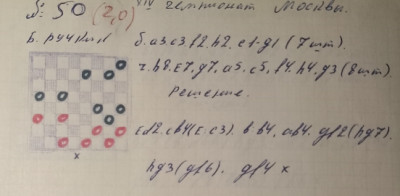 № 50 (2,0) XIV чемпионат Москвы.
Б. Ручкин б. a3 c3 f2 h2. e1. g1 (7шт).
ч. h8. e7. g7. a5. c5. f4. h4. g3 (8шт).
Решение.
cd2. cb4 (e c3). b b4. ab4. gf2 (hg7).
hg3 (gf6). gf4 x
x